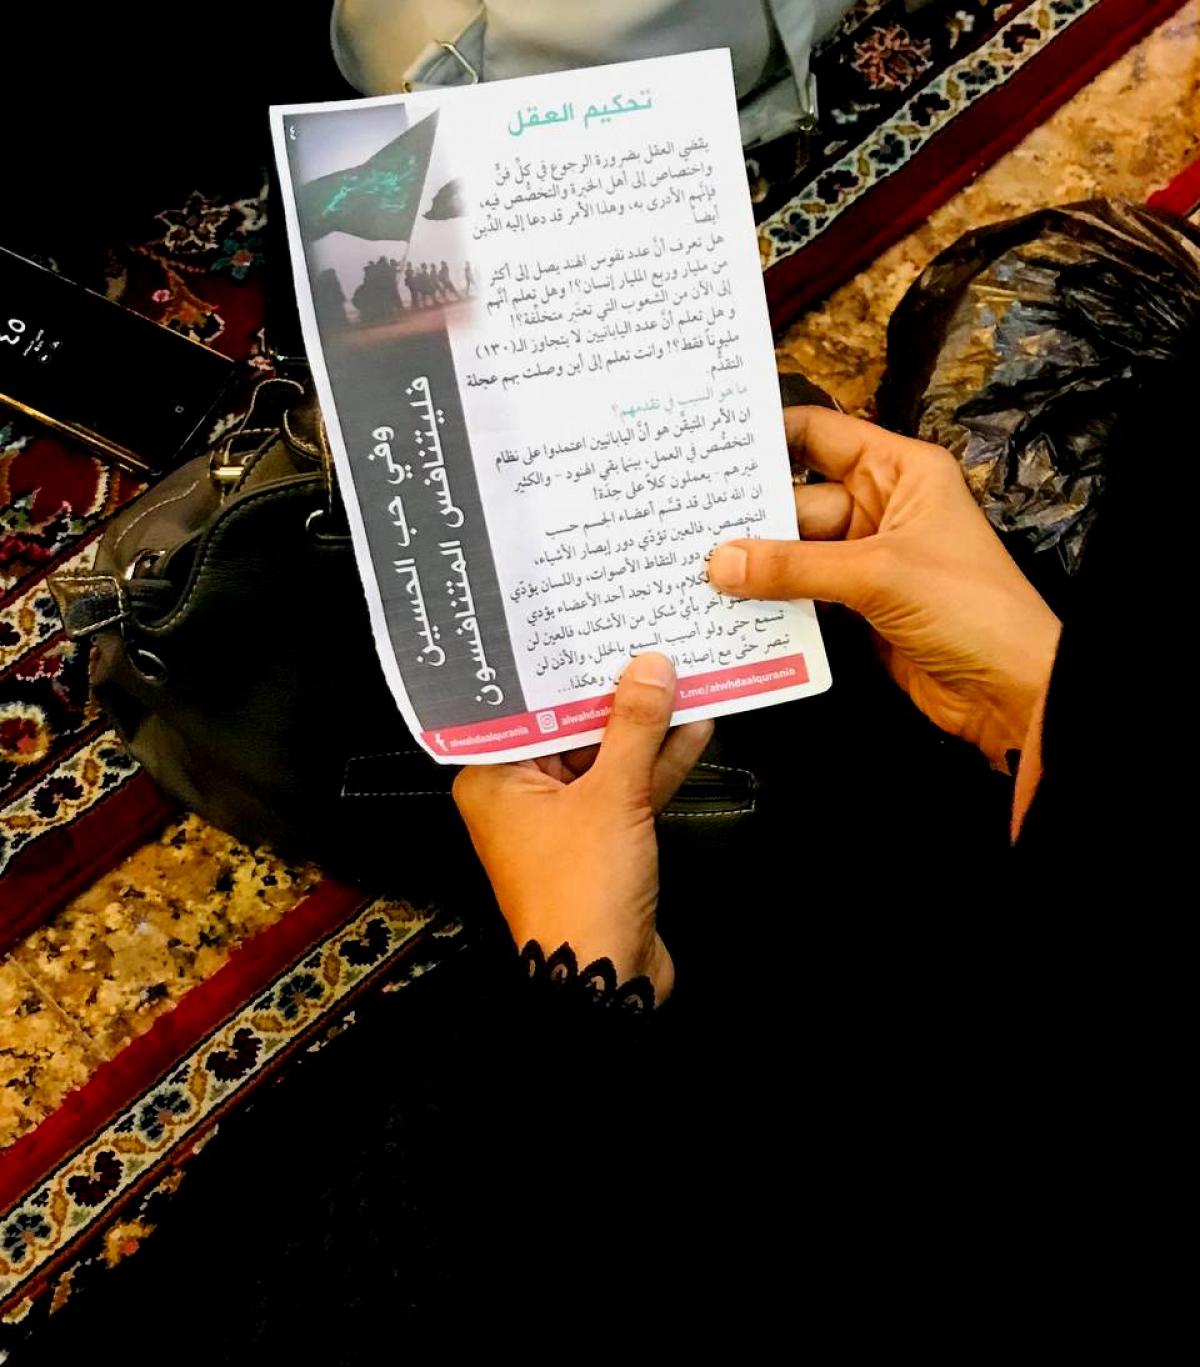 ٤
تحكيم العقل
يقضي العقل بضرورة الرجوع في كلِّ فنٍّ
واختصاص إلى أهل الخبرة والتخصُّص فيه،
فإنَّهم الأدرى به، وهذا الأمر قد دعا إليه الدِّين
أيضاً
هل تعرف أنَّ عدد نفوس الهند يصل إلى أكثر
من مليار وربع المليار إنسان؟! وهل تعلم أنَّهم
إلى الآن من الشعوب التي تعتبر متخلّفة؟!
و هل تعلم أنَّ عدد اليابانيين لا يتجاوز الـ(١٣٠)
مليوناً فقط؟! وانت تعلم إلى أين وصلت بهم عجلة
التقدُّم.
ما هو السبب في تقدمهم؟
ان الأمر المتيقَّن هو أنَّ اليابانيين اعتمدوا على نظام
التخصُّص في العمل، بينما بقي الهنود - والكثير
غيرهم - يعملون كلاً على حِدَة!
ان الله تعالى قد قسَّم أعضاء الجسم حسب
التخصص، فالعين تؤدّي دور إبصار الأشياء،
دور التقاط الأصوات، واللسان يؤدّي
الكلام، ولا نجد أحد الأعضاء يؤدي
آخر بأيِّ شكل من الأشكال، فالعين لن
تسمع حتى ولو أصيب السمع بالخلل، والأذن لن
تبصر حتَّى مع إصابة وهكذا...
وفي حب الحسين
فليتنافس المتنافسون
alwahdaalqurania
t.me/alwhdaalqurania